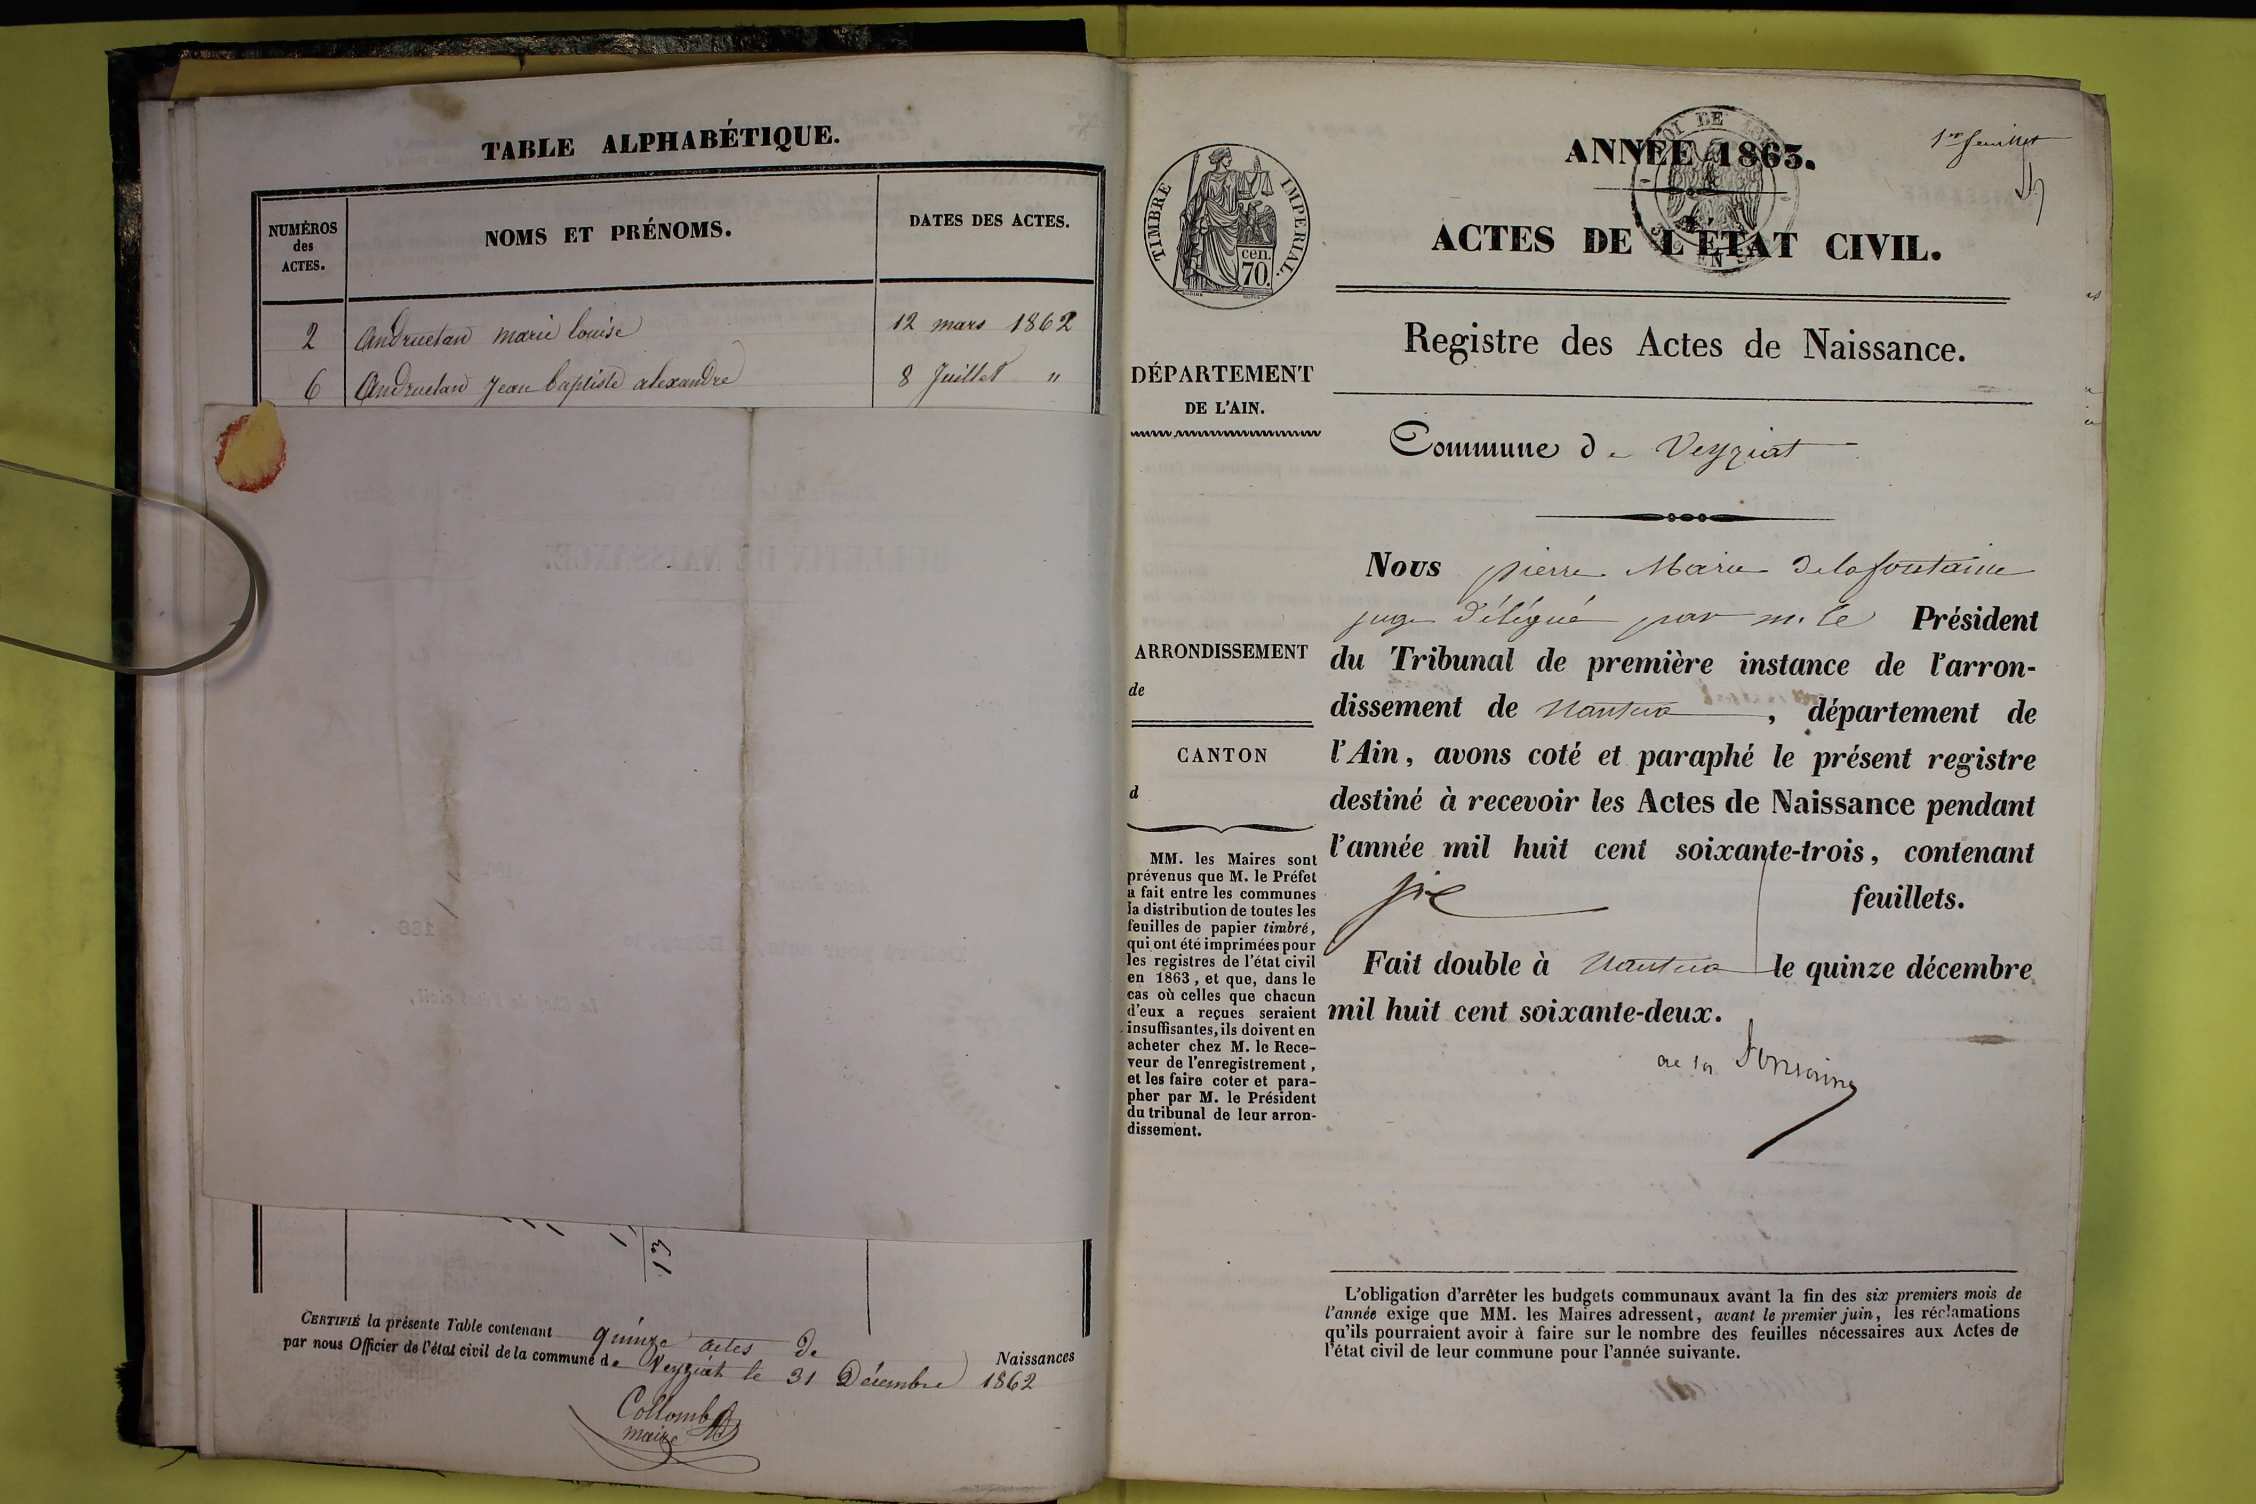 TABLE ALPHABÉTIQUE.
NUMÉROS
des
ACTES.
NOMS ET PRÉNOMS.
DATES DES ACTES.
2 Andruetan marie louise 12 mars 1862
6 Andruetan Jean baptiste alexandre 8 Juillet "
13
CERTIFIÉ la présente Table contenant quinze actes de Naissances
par nous Officier de l'état civil de la commune de Veyziat le 31 Décembre 1862
Collomb
maire
1er feuillet
ANNÉE 1863.
ACTES DE L'ÉTAT CIVIL.
TIMBRE IMPERIAL.
cen.
70.
Registre des Actes de Naissance.
DÉPARTEMENT
DE L'AIN.
Commune de Veyziat
Nous pierre Marie Delafontaine
juge délégué par m. le Président
du Tribunal de première instance de l'arron-
dissement de Nantua, département de
l'Ain, avons coté et paraphé le présent registre
destiné à recevoir les Actes de Naissance pendant
l'année mil huit cent soixante-trois, contenant
six feuillets.
Fait double à Nantua le quinze décembre
mil huit cent soixante-deux.
de la Fontaine
ARRONDISSEMENT
de
CANTON
d
MM. les Maires sont
prévenus que M. le Préfet
a fait entre les communes
la distribution de toutes les
feuilles de papier timbré,
qui ont été imprimées pour
les registres de l'état civil
en 1863, et que, dans le
cas où celles que chacun
d'eux a reçues seraient
insuffisantes, ils doivent en
acheter chez M. le Rece-
veur de l'enregistrement,
et les faire coter et para-
pher par M. le Président
du tribunal de leur arron-
dissement.
L'obligation d'arrêter les budgets communaux avant la fin des six premiers mois de
l'année exige que MM. les Maires adressent, avant le premier juin, les réclamations
qu'ils pourraient avoir à faire sur le nombre des feuilles nécessaires aux Actes de
l'état civil de leur commune pour l'année suivante.